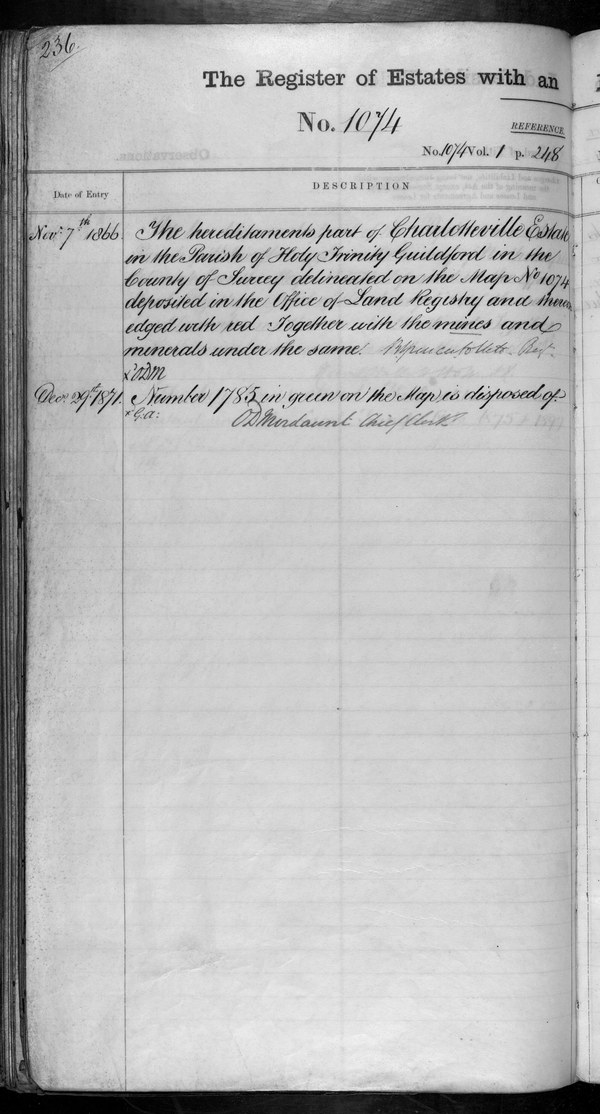 236.
The Register of Estates with an
No. 1074
REFERENCE.
No. 1074 Vol. 1 p. 248
Observations.
Date of Entry
DESCRIPTION
Novr. 7th 1866. The hereditaments part of Charlotteville Estate
in the Parish of Holy Trinity Guildford in the
County of Surrey delineated on the Map No 1074
deposited in the Office of Land Registry and thereon
edged with red Together with the mines and
minerals under the same.
x ODM
Decr. 29th 1871. Number 1785 in green on the Map is disposed of.
x G.a: ODMordaunt Chief Clerk